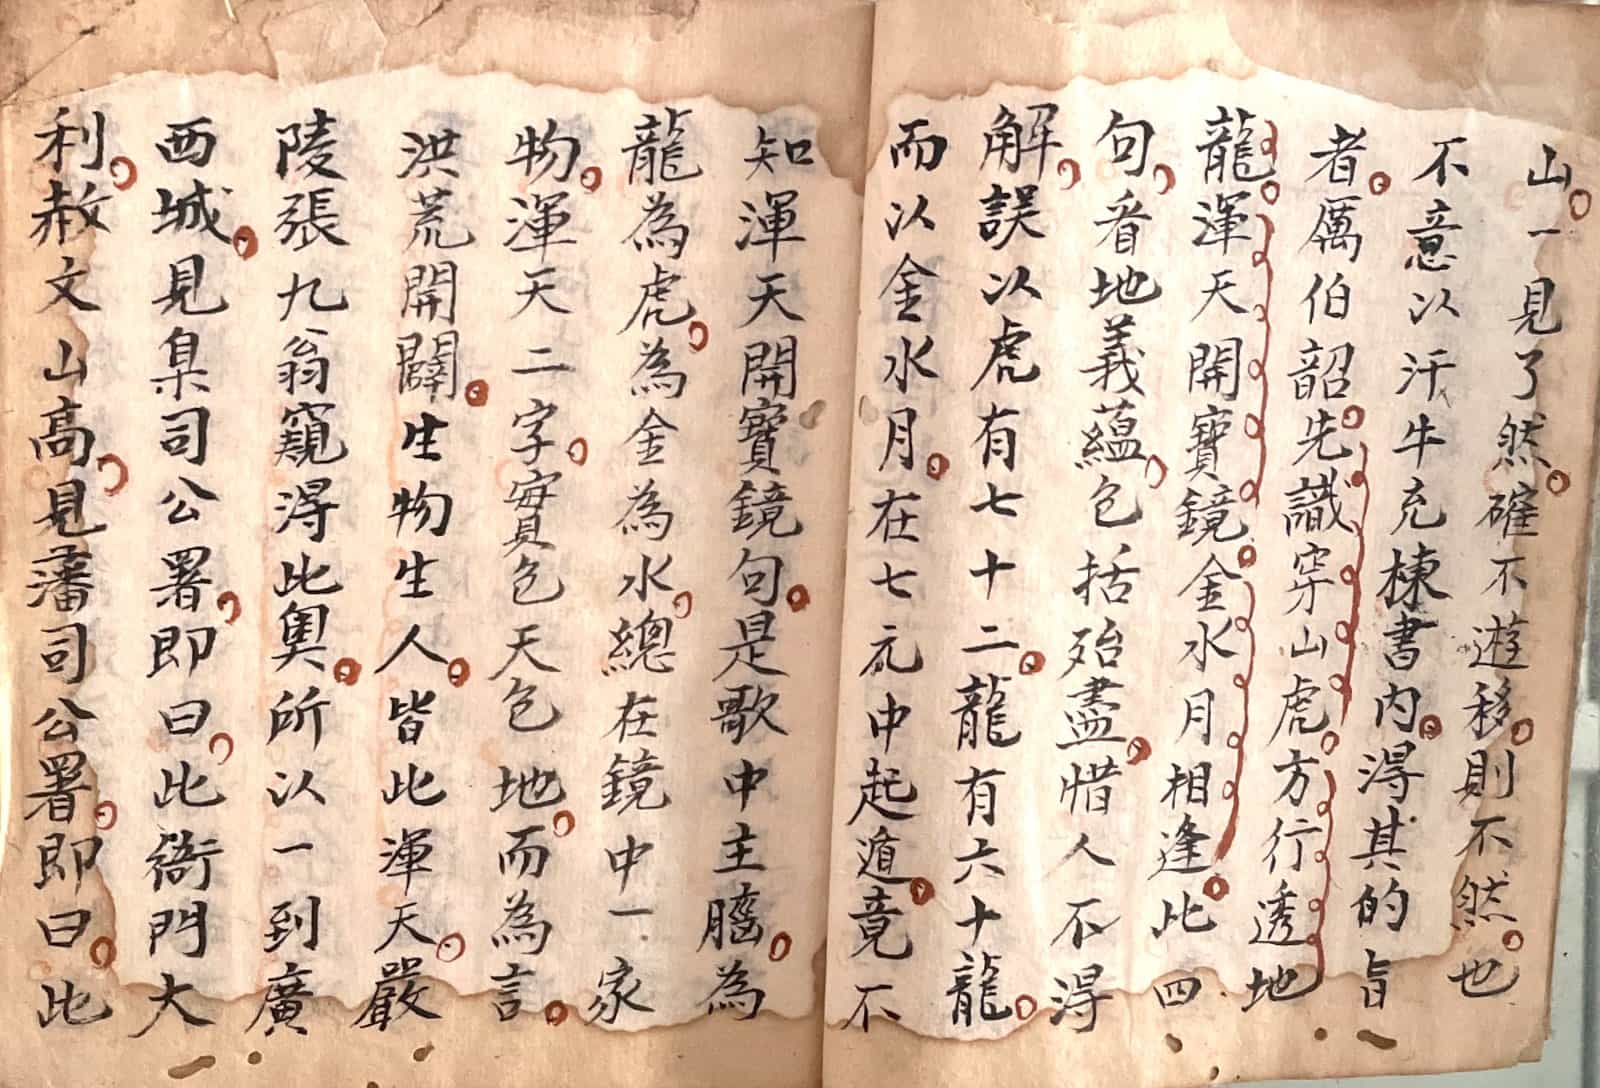 山。一見了然。確不遊移。則不然。也
不意以汗牛充棟書内。得其的旨
者。厲伯韶。先識穿山虎方行透地
龍。渾天開寶鏡。金水月相逢。此四
句。看地義蘊。包括殆盡。惜人不得
解。誤以虎有七十二。龍有六十龍。
而以金水月。在七元中起遁。竟不
知渾天開寶鏡句。是歌中主腦。為
龍為虎。為金為水。總在鏡中一家
物。渾天二字。實包天包地。而為言。
洪荒開闢。生物生人。皆此渾天。嚴
陵張九翁窺得此奥。所以一到廣
西城。見臬司公署。即曰。此衙門大
利。赦文山高。見藩司公署。即曰。此